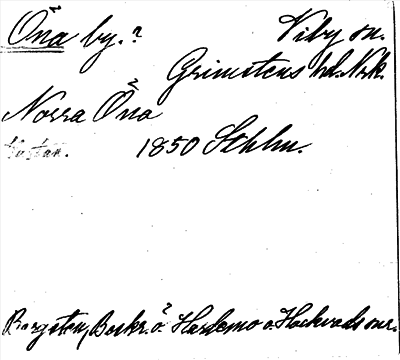 Öna by.² Viby sn.
Grimstens hd. Nrk.
Norra Öna²
1850 Sthlm.
Bergsten, Beskr. ö. Hardemo o. Hackvads snr.